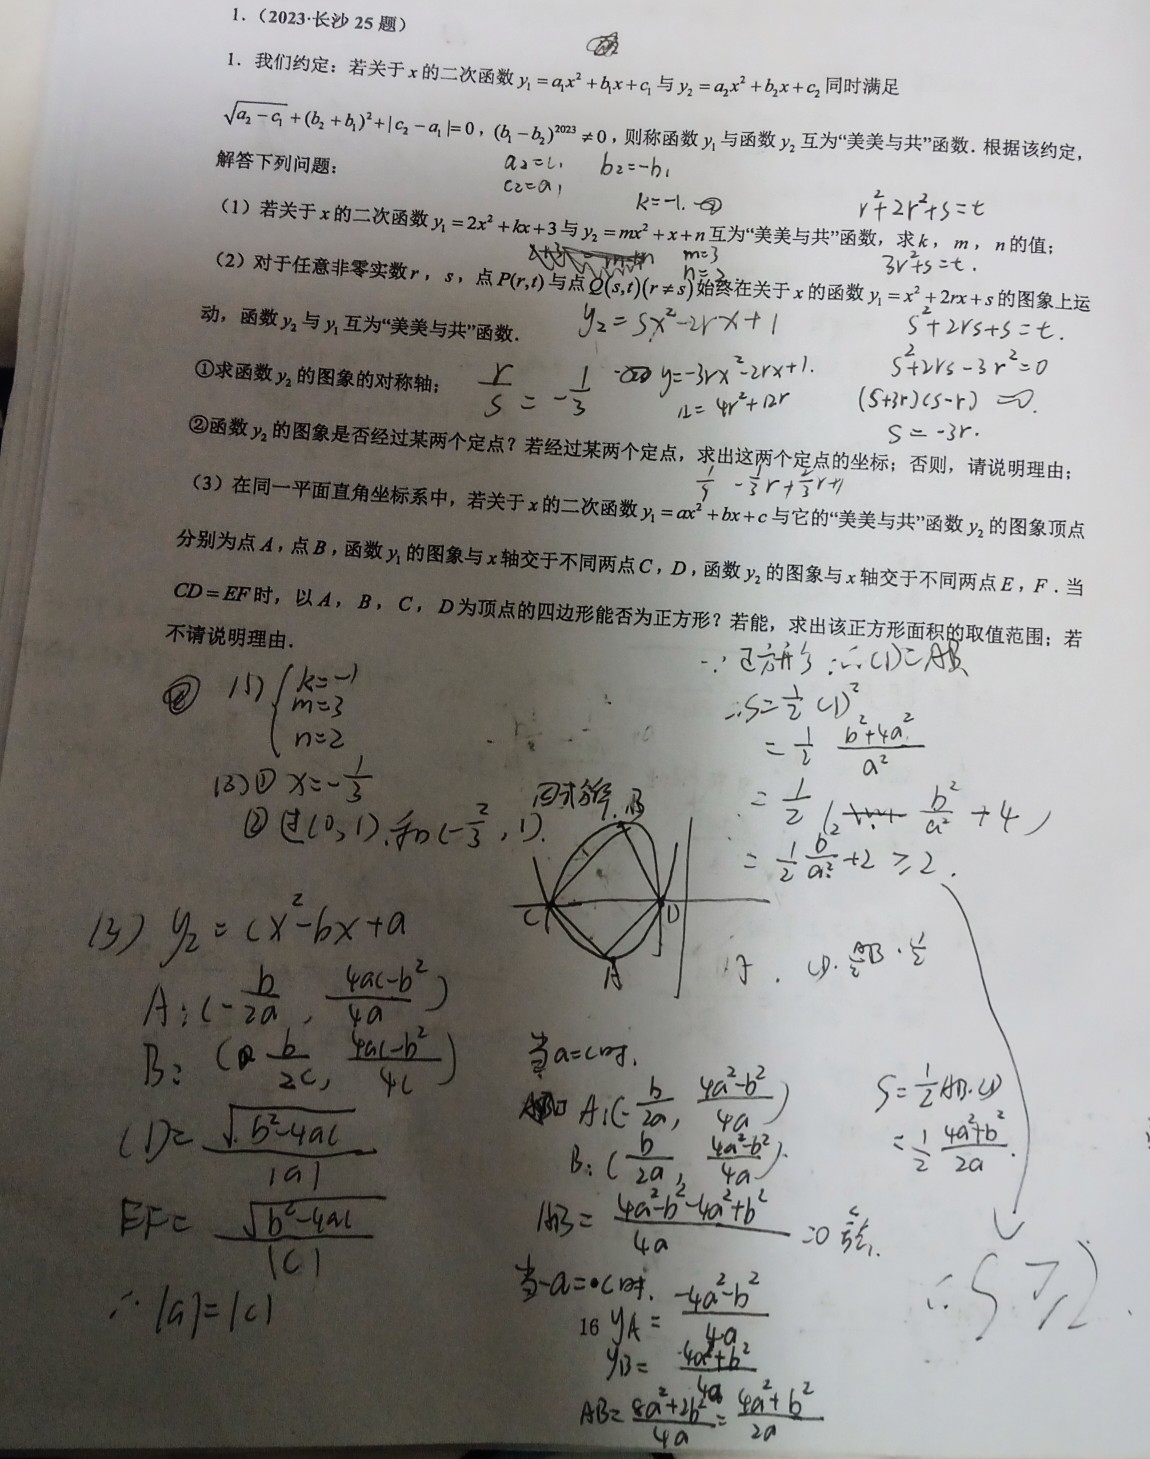 1.（2023·长沙 25 题）
1. 我们约定：若关于 x 的二次函数 y₁ = a₁x² + b₁x + c₁ 与 y₂ = a₂x² + b₂x + c₂ 同时满足
√(a₂ − c₁) + (b₂ + b₁)² + |c₂ − a₁| = 0，(b₁ − b₂)²⁰²³ ≠ 0，则称函数 y₁ 与函数 y₂ 互为“美美与共”函数．根据该约定，
解答下列问题：
a₂=c₁ b₂=-b₁
c₂=a₁
k=-1.
r²+2r²+s=t
（1）若关于 x 的二次函数 y₁ = 2x² + kx + 3 与 y₂ = mx² + x + n 互为“美美与共”函数，求 k，m，n 的值；
m=3
n=2
3r²+s=t.
（2）对于任意非零实数 r，s，点 P(r,t) 与点 Q(s,t)(r ≠ s) 始终在关于 x 的函数 y₁ = x² + 2rx + s 的图象上运
动，函数 y₂ 与 y₁ 互为“美美与共”函数．
y₂=sx²-2rx+1
s²+2rs+s=t.
①求函数 y₂ 的图象的对称轴；
r/s = -1/3
y=-3rx²-2rx+1.
s²+2rs-3r²=0
Δ=4r²+12r
(s+3r)(s-r)=0.
s=-3r.
②函数 y₂ 的图象是否经过某两个定点？若经过某两个定点，求出这两个定点的坐标；否则，请说明理由；
-1/3r+2/3r+1
（3）在同一平面直角坐标系中，若关于 x 的二次函数 y₁ = ax² + bx + c 与它的“美美与共”函数 y₂ 的图象顶点
分别为点 A，点 B，函数 y₁ 的图象与 x 轴交于不同两点 C，D，函数 y₂ 的图象与 x 轴交于不同两点 E，F．当
CD = EF 时，以 A，B，C，D 为顶点的四边形能否为正方形？若能，求出该正方形面积的取值范围；若
不请说明理由．
(1) { k=-1
m=3
n=2
① x=-1/3
② 过(0,1).和(-2/3,1).
∵正方形 ∴CD=AB
∴S=1/2 CD²
=1/2 (b²+4a²)/a²
=1/2 (b²/a²+4)
=1/2 b²/a²+2≥2.
B
C
D
A
(3) y₂=cx²-bx+a
A:(-b/2a, (4ac-b²)/4a)
B:(b/2c, (4ac-b²)/4c)
CD=√(b²-4ac)/|a|
EF=√(b²-4ac)/|c|
∴|a|=|c|
当a=c时.
A:(-b/2a, (4a²-b²)/4a)
B:(b/2a, (4a²-b²)/4a).
AB=(4a²-b²-4a²+b²)/4a=0
S=1/2AB·CD
=1/2 (4a²+b²)/2a.
当-a=c时.
16
yA=(-4a²-b²)/4a
yB=(4a²+b²)/4a
AB=(8a²+2b²)/4a=(4a²+b²)/2a
∴S≥2